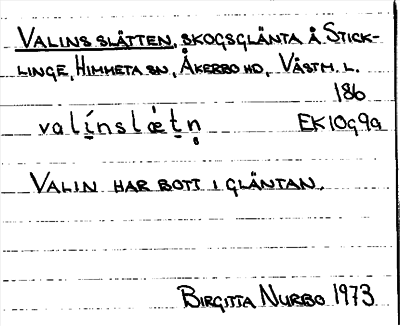 VALINS SLÄTTEN, SKOGSGLÄNTA Å STICK-
LINGE, HIMMETA SN, ÅKERBO HD, VÄSTM. L.
186
valínslǽtn̥ EK10G9a
VALIN HAR BOTT I GLÄNTAN.
BIRGITTA NURBO 1973